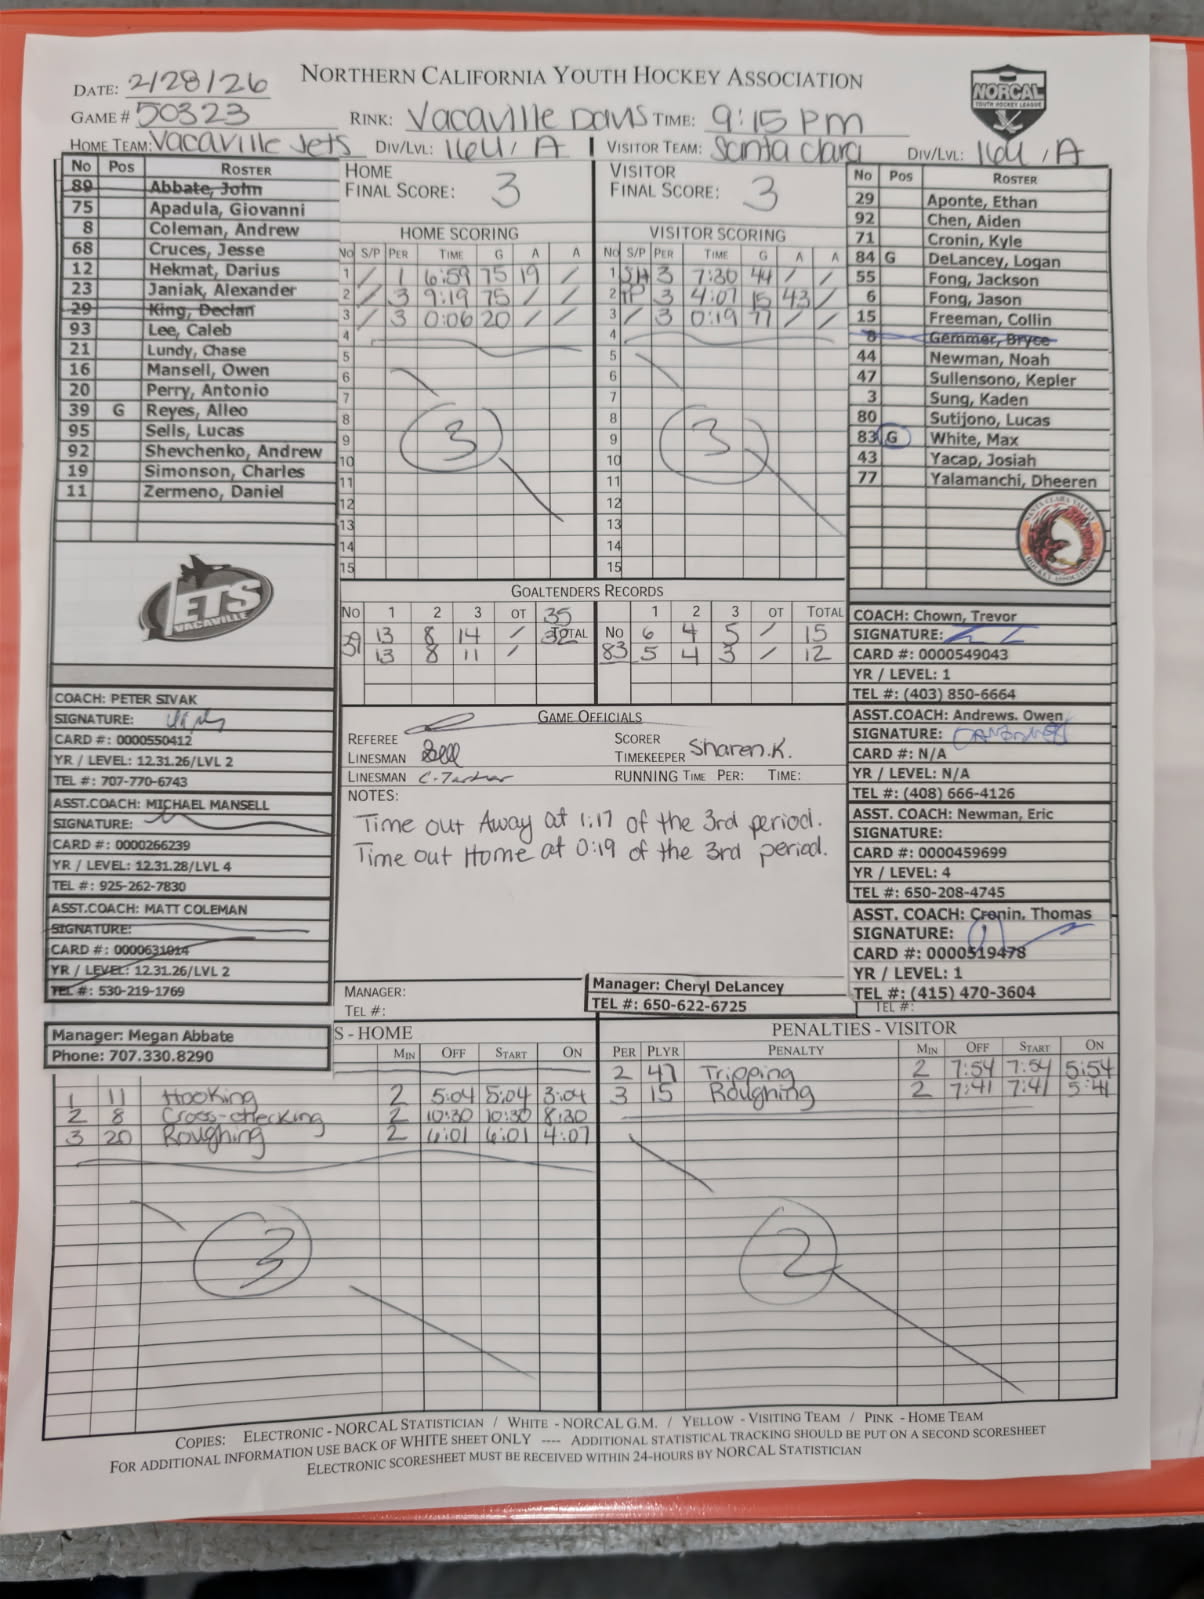 NORTHERN CALIFORNIA YOUTH HOCKEY ASSOCIATION
DATE: 2/28/26
GAME # 50323
RINK: Vacaville Davis TIME: 9:15 PM
HOME TEAM: Vacaville Jets DIV/LVL: 16U / A
VISITOR TEAM: Santa Clara DIV/LVL: 16U / A
NORCAL
YOUTH HOCKEY LEAGUE
No Pos ROSTER
89 Abbate, John
75 Apadula, Giovanni
8 Coleman, Andrew
68 Cruces, Jesse
12 Hekmat, Darius
23 Janiak, Alexander
29 King, Declan
93 Lee, Caleb
21 Lundy, Chase
16 Mansell, Owen
20 Perry, Antonio
39 G Reyes, Alleo
95 Sells, Lucas
92 Shevchenko, Andrew
19 Simonson, Charles
11 Zermeno, Daniel
JETS
VACAVILLE
COACH: PETER SIVAK
SIGNATURE:
CARD #: 0000550412
YR / LEVEL: 12.31.26/LVL 2
TEL #: 707-770-6743
ASST.COACH: MICHAEL MANSELL
SIGNATURE:
CARD #: 0000266239
YR / LEVEL: 12.31.28/LVL 4
TEL #: 925-262-7830
ASST.COACH: MATT COLEMAN
SIGNATURE:
CARD #: 0000631014
YR / LEVEL: 12.31.26/LVL 2
TEL #: 530-219-1769
Manager: Megan Abbate
Phone: 707.330.8290
HOME FINAL SCORE: 3
VISITOR FINAL SCORE: 3
HOME SCORING
No S/P PER TIME G A A
1 / 1 6:59 75 19 /
2 / 3 9:19 75 / /
3 / 3 0:06 20 / /
4
5
6
7
8
9
10
11
12
13
14
15
3
VISITOR SCORING
No S/P PER TIME G A A
1 SH 3 7:30 44 / /
2 PP 3 4:07 15 43 /
3 / 3 0:19 77 / /
4
5
6
7
8
9
10
11
12
13
14
15
3
GOALTENDERS RECORDS
No 1 2 3 OT TOTAL
39 13 8 14 / 35
13 8 11 / 32
No 1 2 3 OT TOTAL
83 6 4 5 / 15
5 4 3 / 12
GAME OFFICIALS
REFEREE
LINESMAN
LINESMAN
SCORER
TIMEKEEPER Sharen.K.
RUNNING TIME PER: TIME:
NOTES:
Time out Away at 1:17 of the 3rd period.
Time out Home at 0:19 of the 3rd period.
MANAGER:
TEL #:
Manager: Cheryl DeLancey
TEL #: 650-622-6725
No Pos ROSTER
29 Aponte, Ethan
92 Chen, Aiden
71 Cronin, Kyle
84 G DeLancey, Logan
55 Fong, Jackson
6 Fong, Jason
15 Freeman, Collin
8 Gemmer, Bryce
44 Newman, Noah
47 Sullensono, Kepler
3 Sung, Kaden
80 Sutijono, Lucas
83 G White, Max
43 Yacap, Josiah
77 Yalamanchi, Dheeren
SANTA CLARA VALLEY
HOCKEY ASSOCIATION
COACH: Chown, Trevor
SIGNATURE:
CARD #: 0000549043
YR / LEVEL: 1
TEL #: (403) 850-6664
ASST.COACH: Andrews. Owen
SIGNATURE:
CARD #: N/A
YR / LEVEL: N/A
TEL #: (408) 666-4126
ASST. COACH: Newman, Eric
SIGNATURE:
CARD #: 0000459699
YR / LEVEL: 4
TEL #: 650-208-4745
ASST. COACH: Cronin, Thomas
SIGNATURE:
CARD #: 0000519478
YR / LEVEL: 1
TEL #: (415) 470-3604
TEL #:
S - HOME
MIN OFF START ON
1 11 Hooking 2 5:04 5:04 3:04
2 8 Cross-checking 2 10:30 10:30 8:30
3 20 Roughing 2 6:01 6:01 4:07
3
PENALTIES - VISITOR
PER PLYR PENALTY MIN OFF START ON
2 47 Tripping 2 7:54 7:54 5:54
3 15 Roughing 2 7:41 7:41 5:41
2
COPIES: ELECTRONIC - NORCAL STATISTICIAN / WHITE - NORCAL G.M. / YELLOW - VISITING TEAM / PINK - HOME TEAM
FOR ADDITIONAL INFORMATION USE BACK OF WHITE SHEET ONLY ---- ADDITIONAL STATISTICAL TRACKING SHOULD BE PUT ON A SECOND SCORESHEET
ELECTRONIC SCORESHEET MUST BE RECEIVED WITHIN 24-HOURS BY NORCAL STATISTICIAN